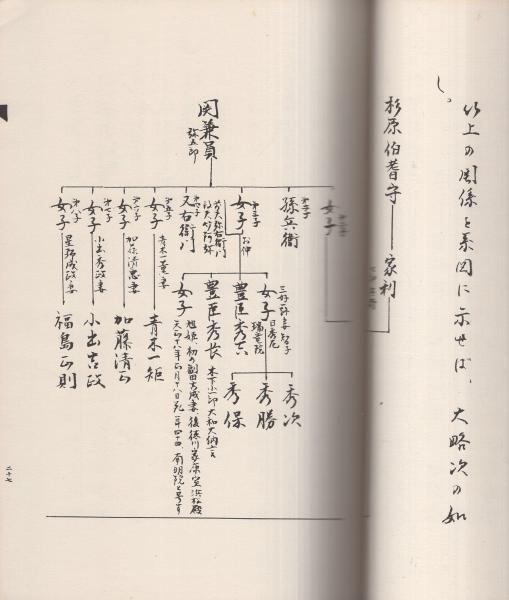 以上の関係を系図に示せば、大略次の如
し。
杉原伯耆守
家利
関兼員
弥五郎
女子
第二子
孫兵衛
第三子
女子
お仲
又右衛門
女子
青木一董妻
青木一矩
女子
加藤清忠妻
加藤清正
女子
小出秀政妻
小出吉政
女子
星野成政妻
福島正則
女子
瑞竜院
日秀尼
三好一路妻智子
秀次
秀勝
秀保
豊臣秀吉
豊臣秀長
木下小一郎大和大納言
女子
旭姫、初め副田吉成妻、後徳川家康室浜松殿
南明院と号す
二十七